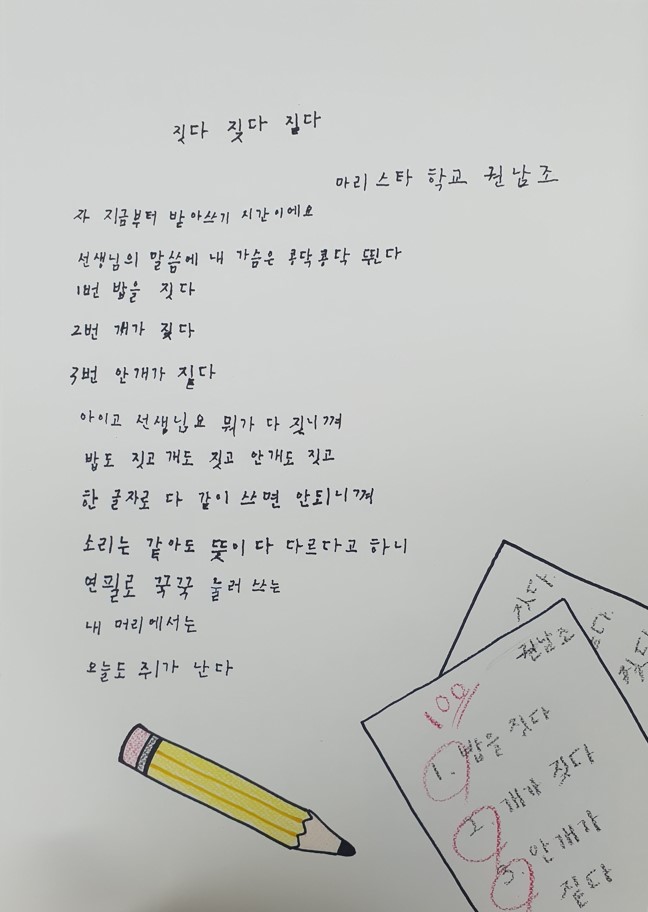 짓다 짖다 짙다
마리스타 학교 권남조
자 지금부터 받아쓰기 시간이에요
선생님의 말씀에 내 가슴은 콩닥콩닥 뛴다
1번 밥을 짓다
2번 개가 짖다
3번 안개가 짙다
아이고 선생님요 뭐가 다 짓니껴
밥도 짓고 개도 짓고 안개도 짓고
한 글자로 다 같이 쓰면 안되니껴
소리는 같아도 뜻이 다 다르다고 하니
연필로 꾹꾹 눌러 쓰는
내 머리에서는
오늘도 쥐가 난다
짓다
권남조
100
1. 밥을 짓다
2. 개가 짖다
3. 안개가
짙다